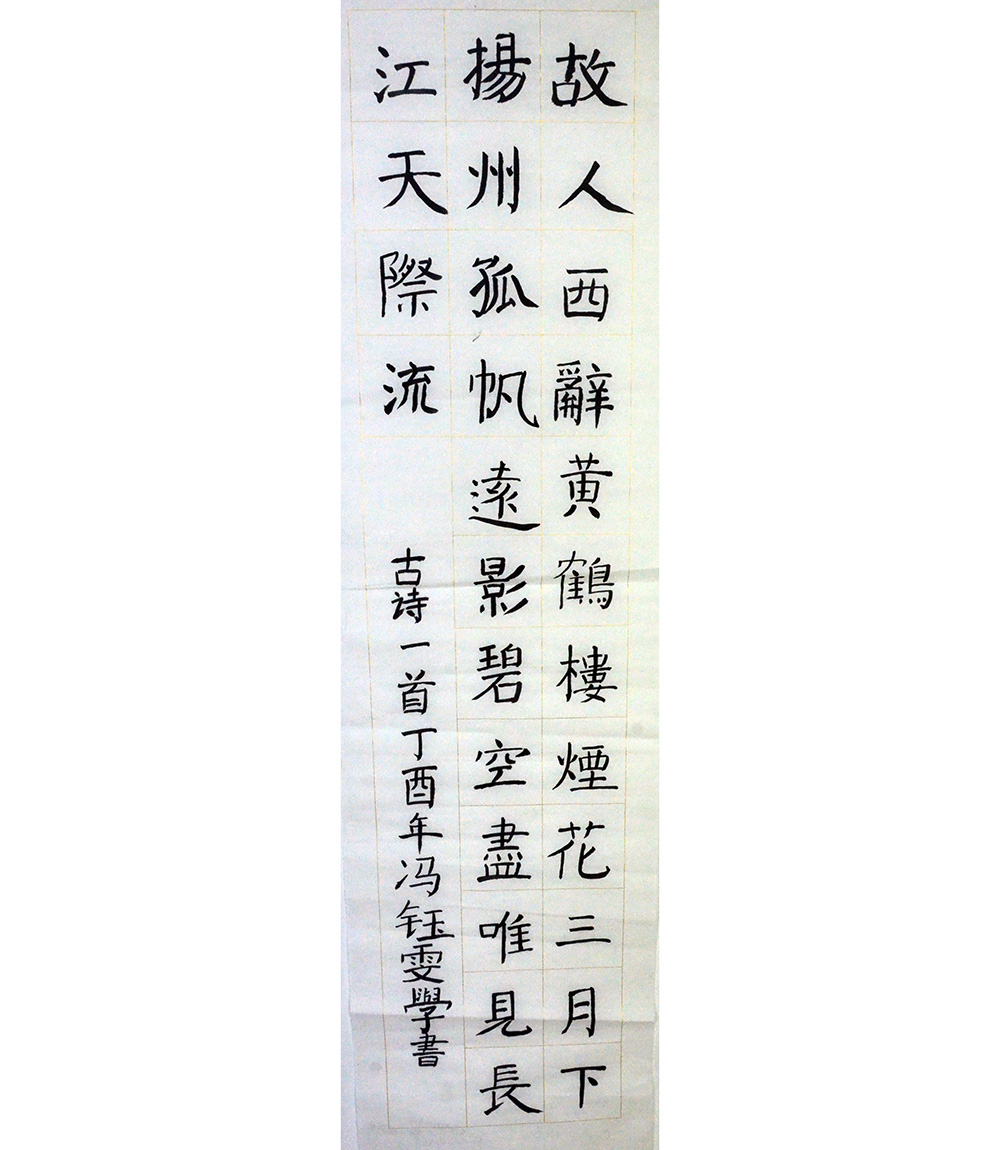 故人西辭黃鶴樓煙花三月下
揚州孤帆遠影碧空盡唯見長
江天際流
古诗一首丁酉年冯钰雯學書